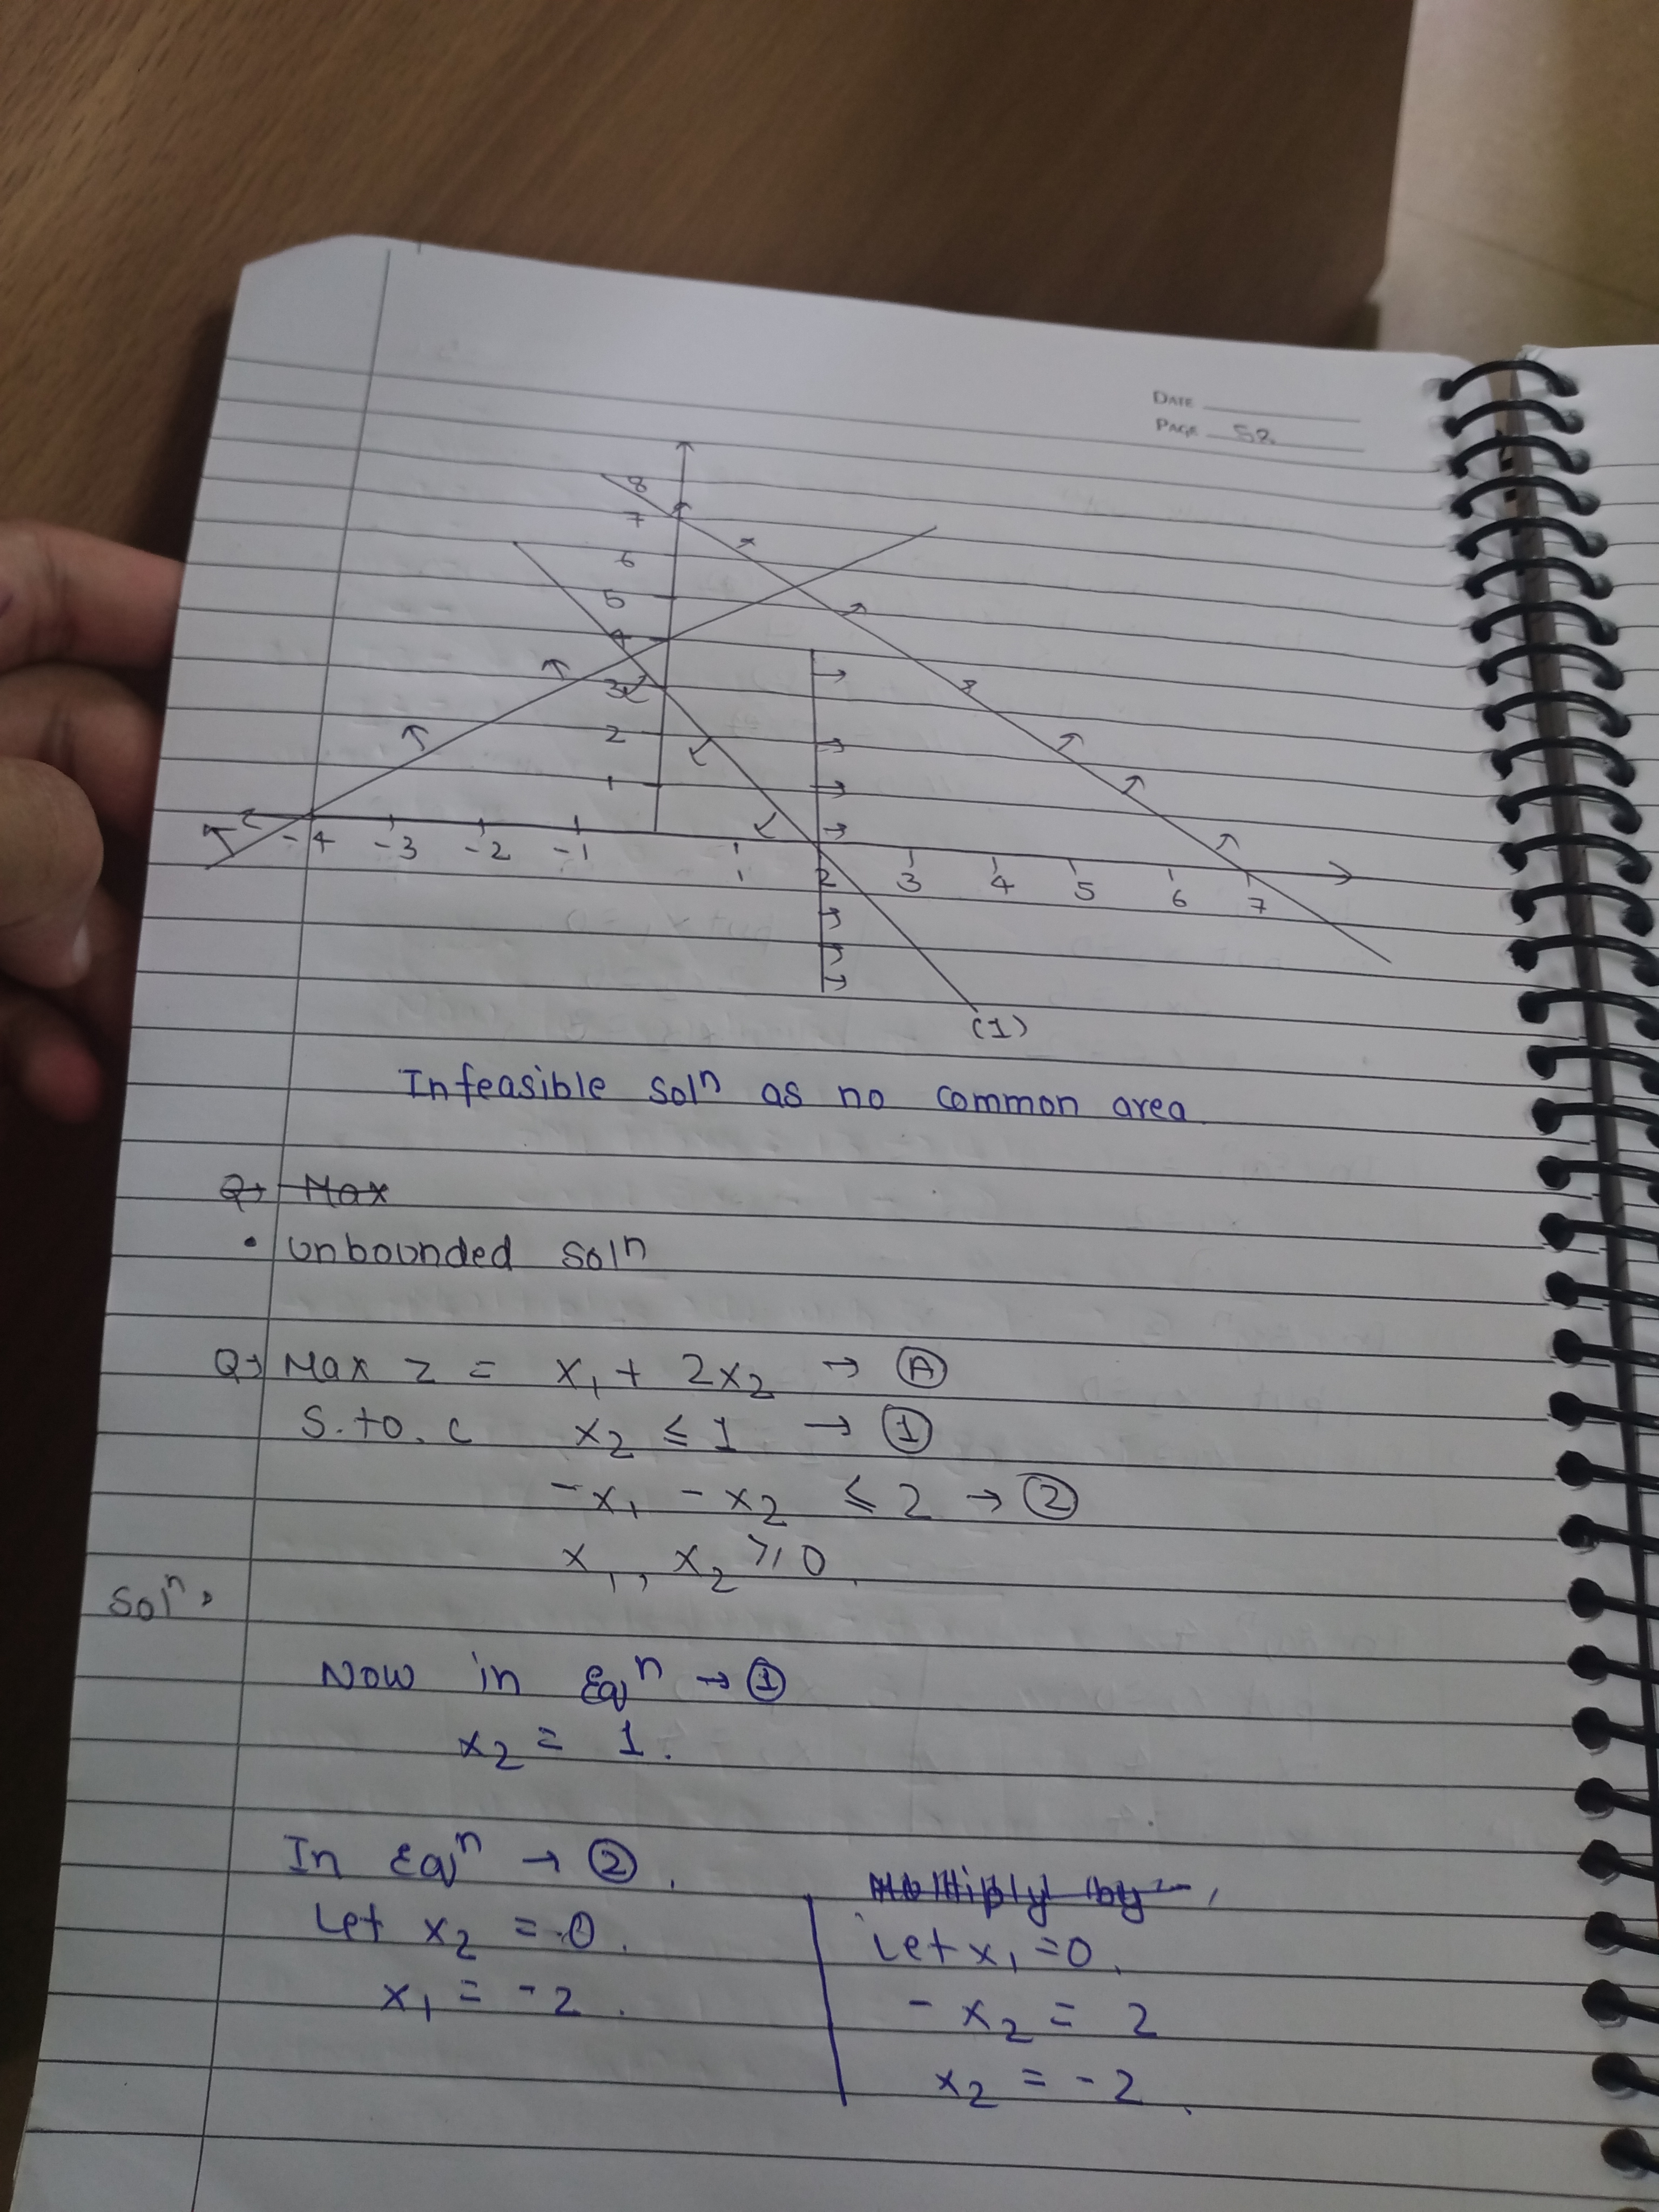 DATE
PAGE 52
8
7
6
5
4
3
2
1
-4 -3 -2 -1 1 2 3 4 5 6 7
(1)
Infeasible solⁿ as no common area
Q→ Max
• Unbounded solⁿ
Q→ Max z = x₁ + 2x₂ → Ⓐ
S. to. c x₂ ≤ 1 → ①
-x₁ - x₂ ≤ 2 → ②
x₁, x₂ ≥ 0.
Solⁿ.
Now in Eqⁿ → ①
x₂ = 1.
In Eqⁿ → ②.
Multiply by -
Let x₂ = 0. Let x₁ = 0.
x₁ = -2. - x₂ = 2
x₂ = -2.